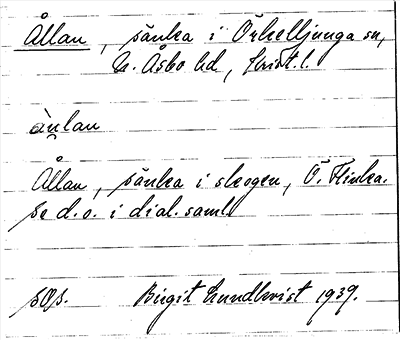 Ållan, sänka i Örkelljunga sn,
N. Åsbo hd, Krist. l.
Ållan, sänka i skogen, Ö. Flinka.
Se d.o. i dial. saml.
SOS. Birgit Lundkvist 1939.